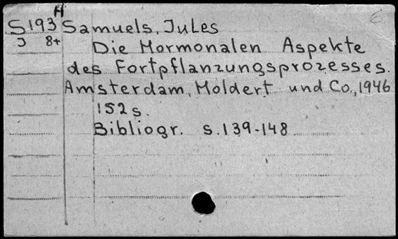 H
S193 Samuels, Jules
J 8+ Die Hormonalen Aspekte
des Fortpflanzungsprozesses.
Amsterdam, Holdert und Co., 1946
152 s.
Bibliogr. s.139-148